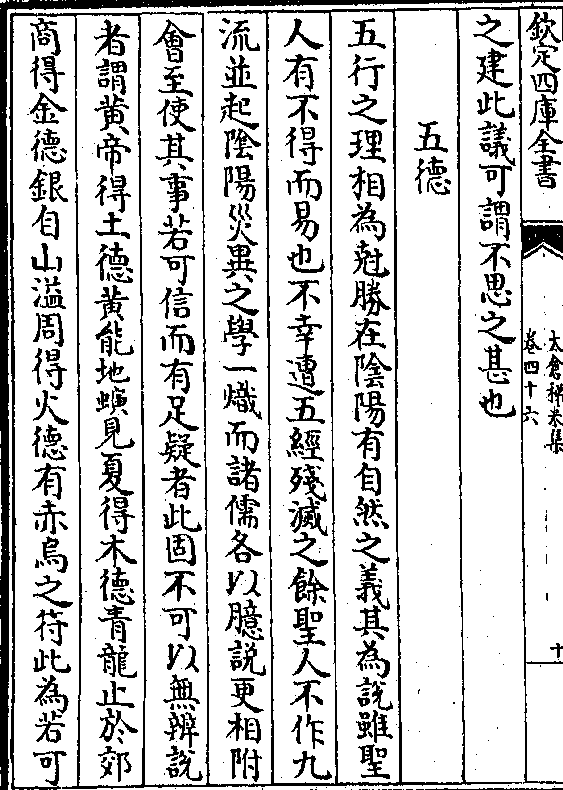 欽定四庫全書
太倉稊米集
卷四十六
十
之建此議可謂不思之甚也
五德
五行之理相為尅勝在陰陽有自然之義其為說雖聖
人有不得而易也不幸遭五經殘滅之餘聖人不作九
流並起陰陽災異之學一熾而諸儒各以臆說更相附
會至使其事若可信而有足疑者此固不可以無辨說
者謂黄帝得土德黄能地螾見夏得木德青龍止於郊
商得金德銀自山溢周得火德有赤烏之符此為若可